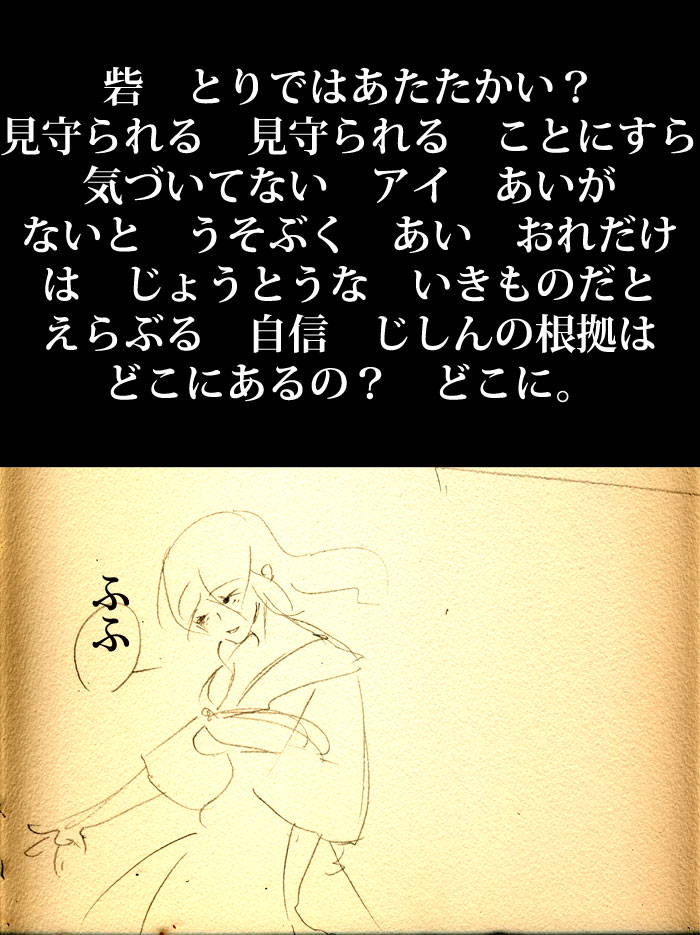 砦　とりではあたたかい？
見守られる　見守られる　ことにすら
気づいてない　アイ　あいが
ないと　うそぶく　あい　おれだけ
は　じょうとうな　いきものだと
えらぶる　自信　じしんの根拠は
どこにあるの？　どこに。
ふふ